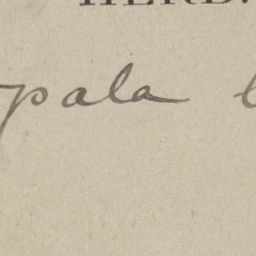 HERB.
pala